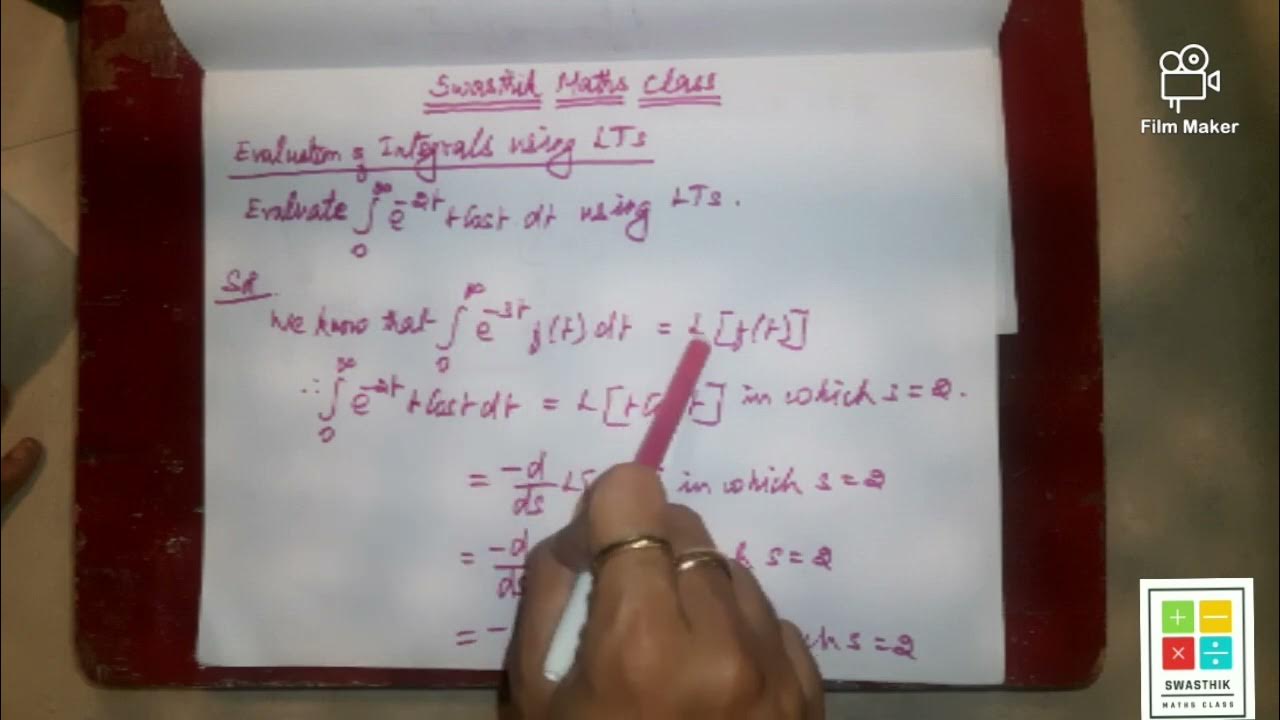 Swasthik Maths Class
Film Maker
Evaluation of Integrals using LTs
Evaluate ∫₀^∞ e^{-2t} t cos t dt using LTs.
Sol
We know that ∫₀^∞ e^{-st} f(t) dt = L[f(t)]
∴ ∫₀^∞ e^{-2t} t cos t dt = L[t t] in which s = 2.
= -d/ds L[ in which s = 2
= -d/ds s = 2
= - s = 2
SWASTHIK
MATHS CLASS